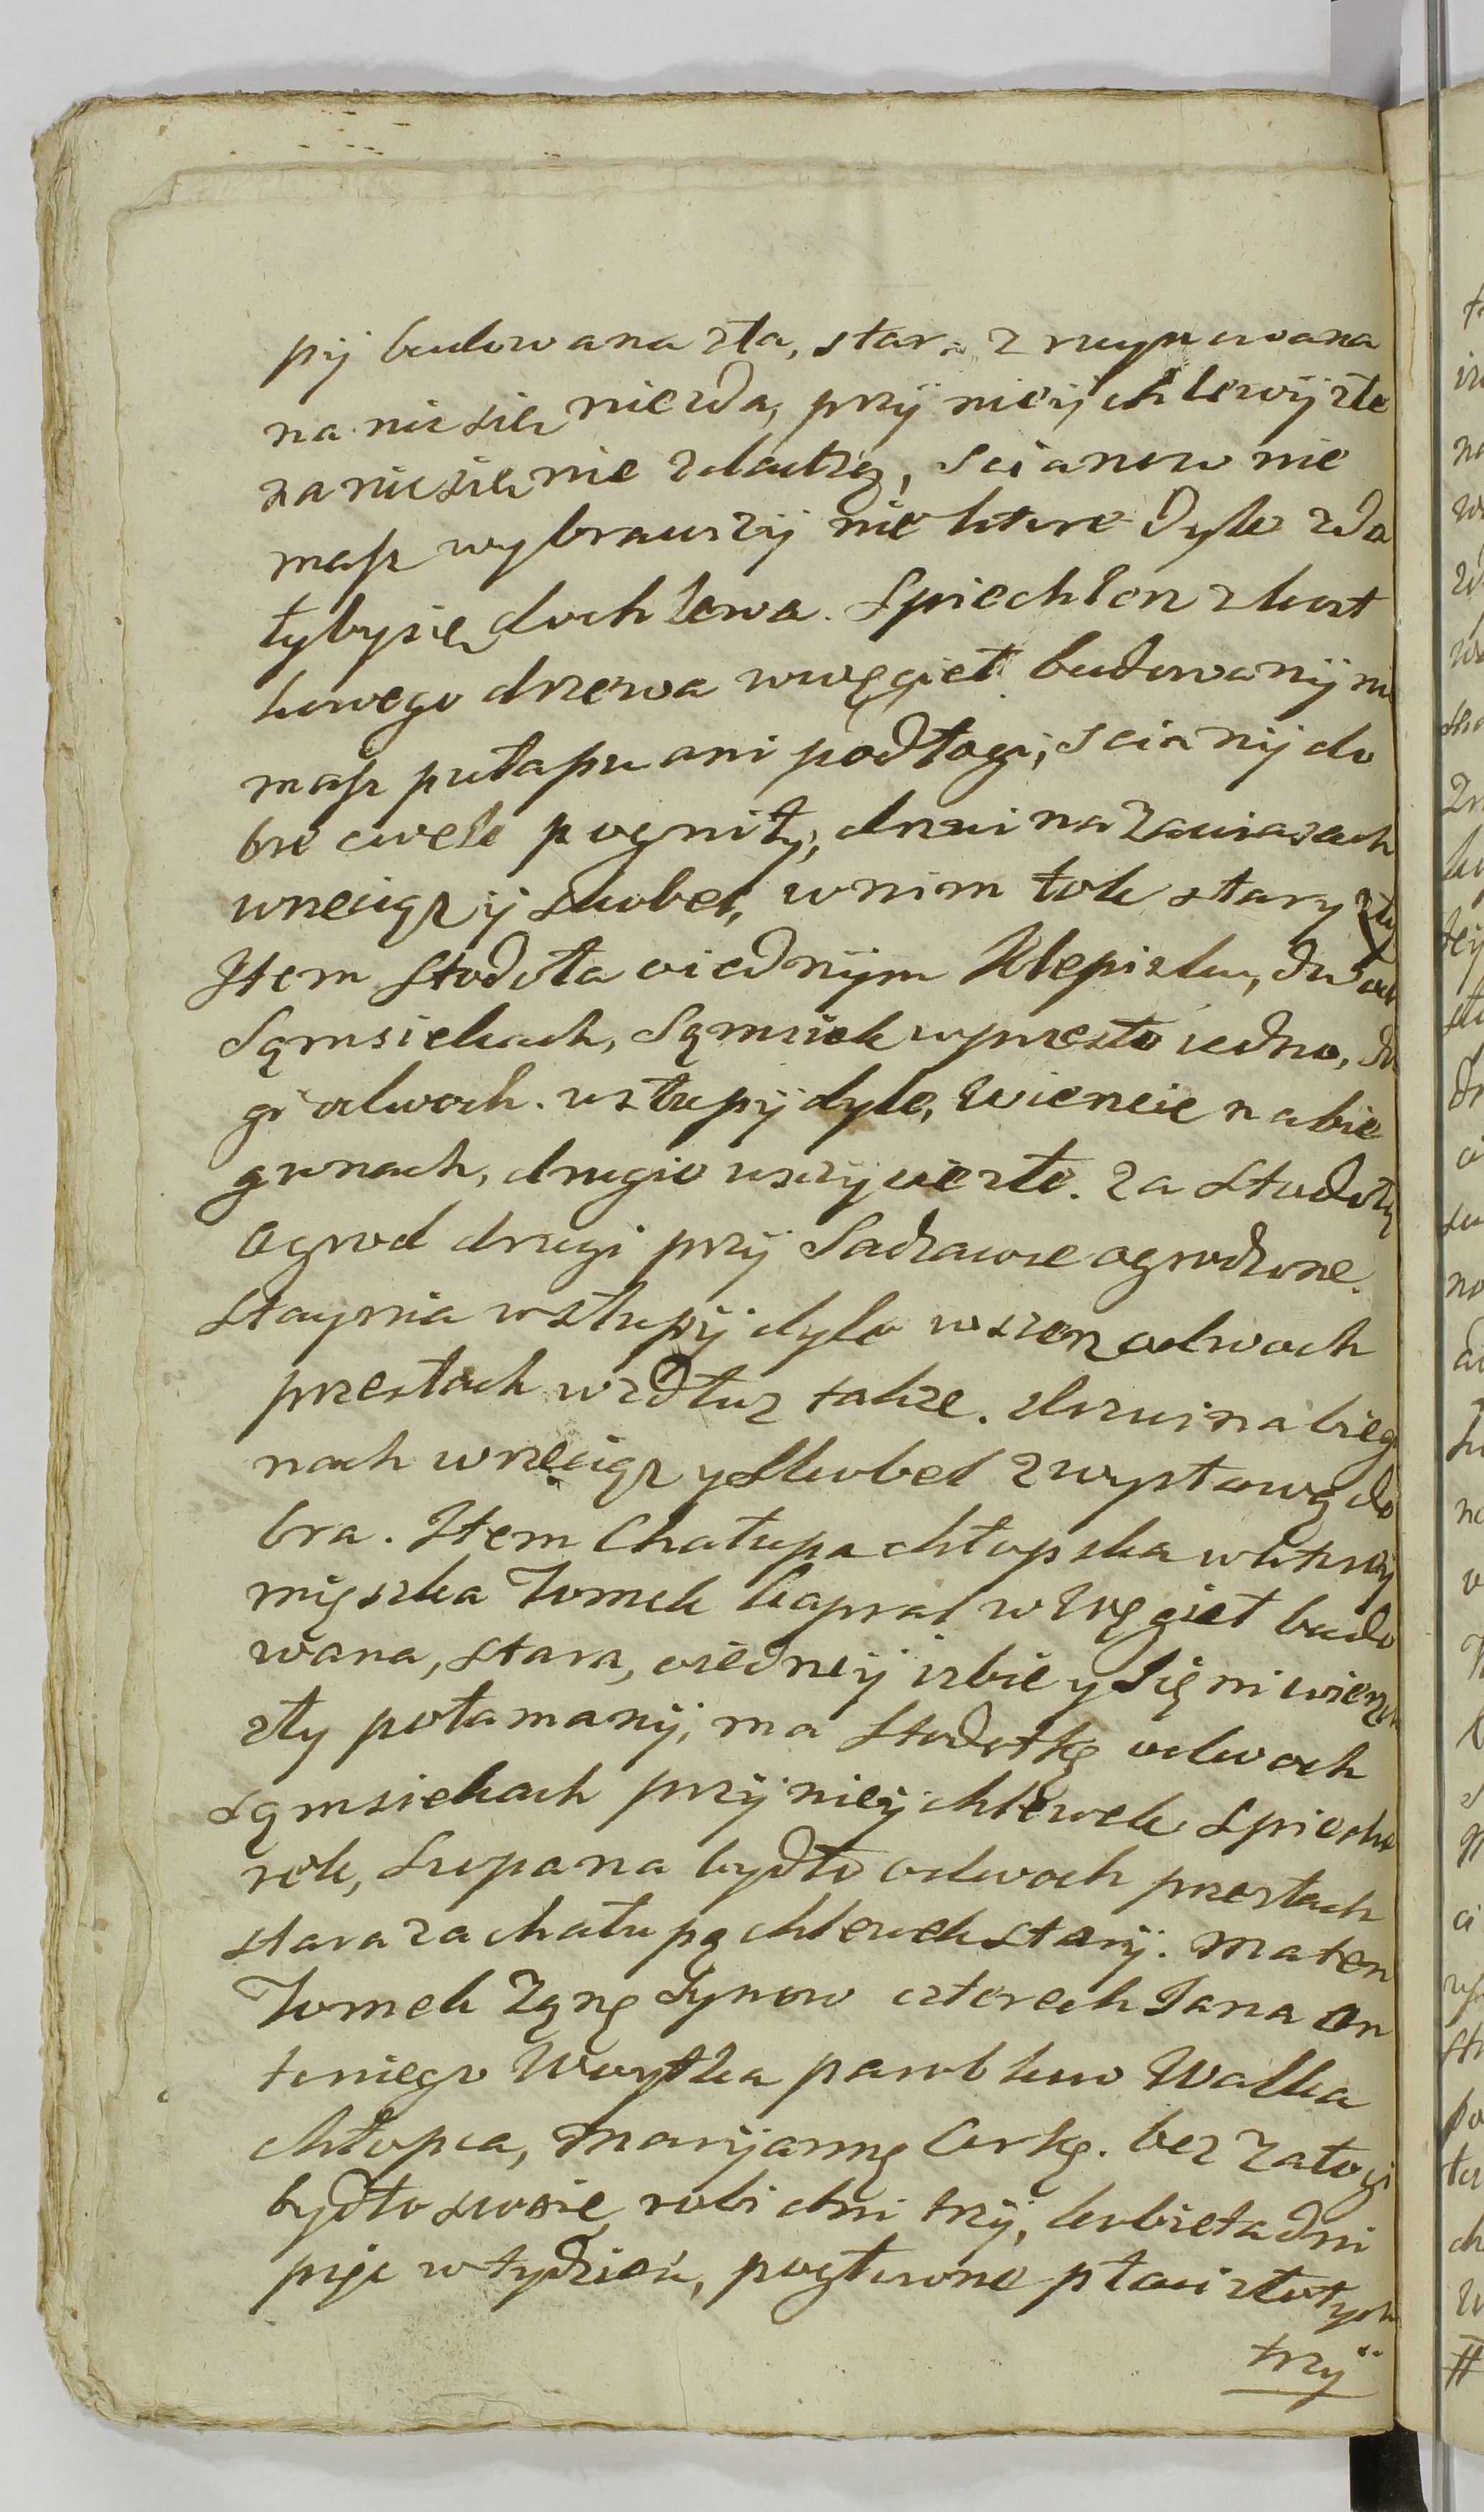 pij budowana zła, stara, zruynowana
na nic się nie zda, przÿ nieÿ chlewÿ złe
na nic się nie zdadzą, scianow nie
masz wybrawszÿ nie ktore dyle zda
łyby się do chlewa. Spiechlerz z kost
kowego drzewa wwęgieł budowanÿ nie
masz pułapu ani podłogi, scianÿ do
brze cwele pogniłÿ, drzwi na zawiasach
wrzeciądz ÿ skobel, w nim tok stary zły
Item Stodoła o iednÿm klepisku, dwoch
Sąmsiekach, Sąmsiek w przęsło iedno, dru
gi o dwoch. w słupÿ dyle, wierzeie na bie
gunach, drugie wszÿ wierzte. za Stodołą
ogrod drugi przÿ Sadzawce ogrodzone.
Staynia w słupÿ dyle w szerz o dwoch
przęsłach wzdłuz takze. drzwi na bieg
nach wrzeciądz y Skobel z wystawą do
bra. Item Chałupa chłopska w ktorey
mięszka Tomek kapral w węgieł budo
wana, stara, o iedneÿ izbie y Sięni wierzch
zły połamanÿ, ma Stodołkę o dwoch
sąmsiekach przÿ nieÿ chlewek Spichle
rek, Szopa na bydło o dwoch przęsłach
stara za chałupą chlewek starÿ. Ma ten
Tomek Zonę Synow czterech Jana An
toniego Woytka parobkow Walka
chłopca, Marÿannę Corkę. bez załogi
bydło swoie, robi dni trzÿ, kobieta dni
pięc w tydzień, pogłowne płaci złotych
trzÿ